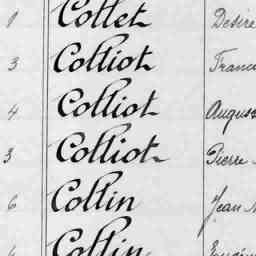 1 Collet Désiré
3 Colliot Franc
4 Colliot August
3 Colliot Pierre
6 Collin Jean
Collin